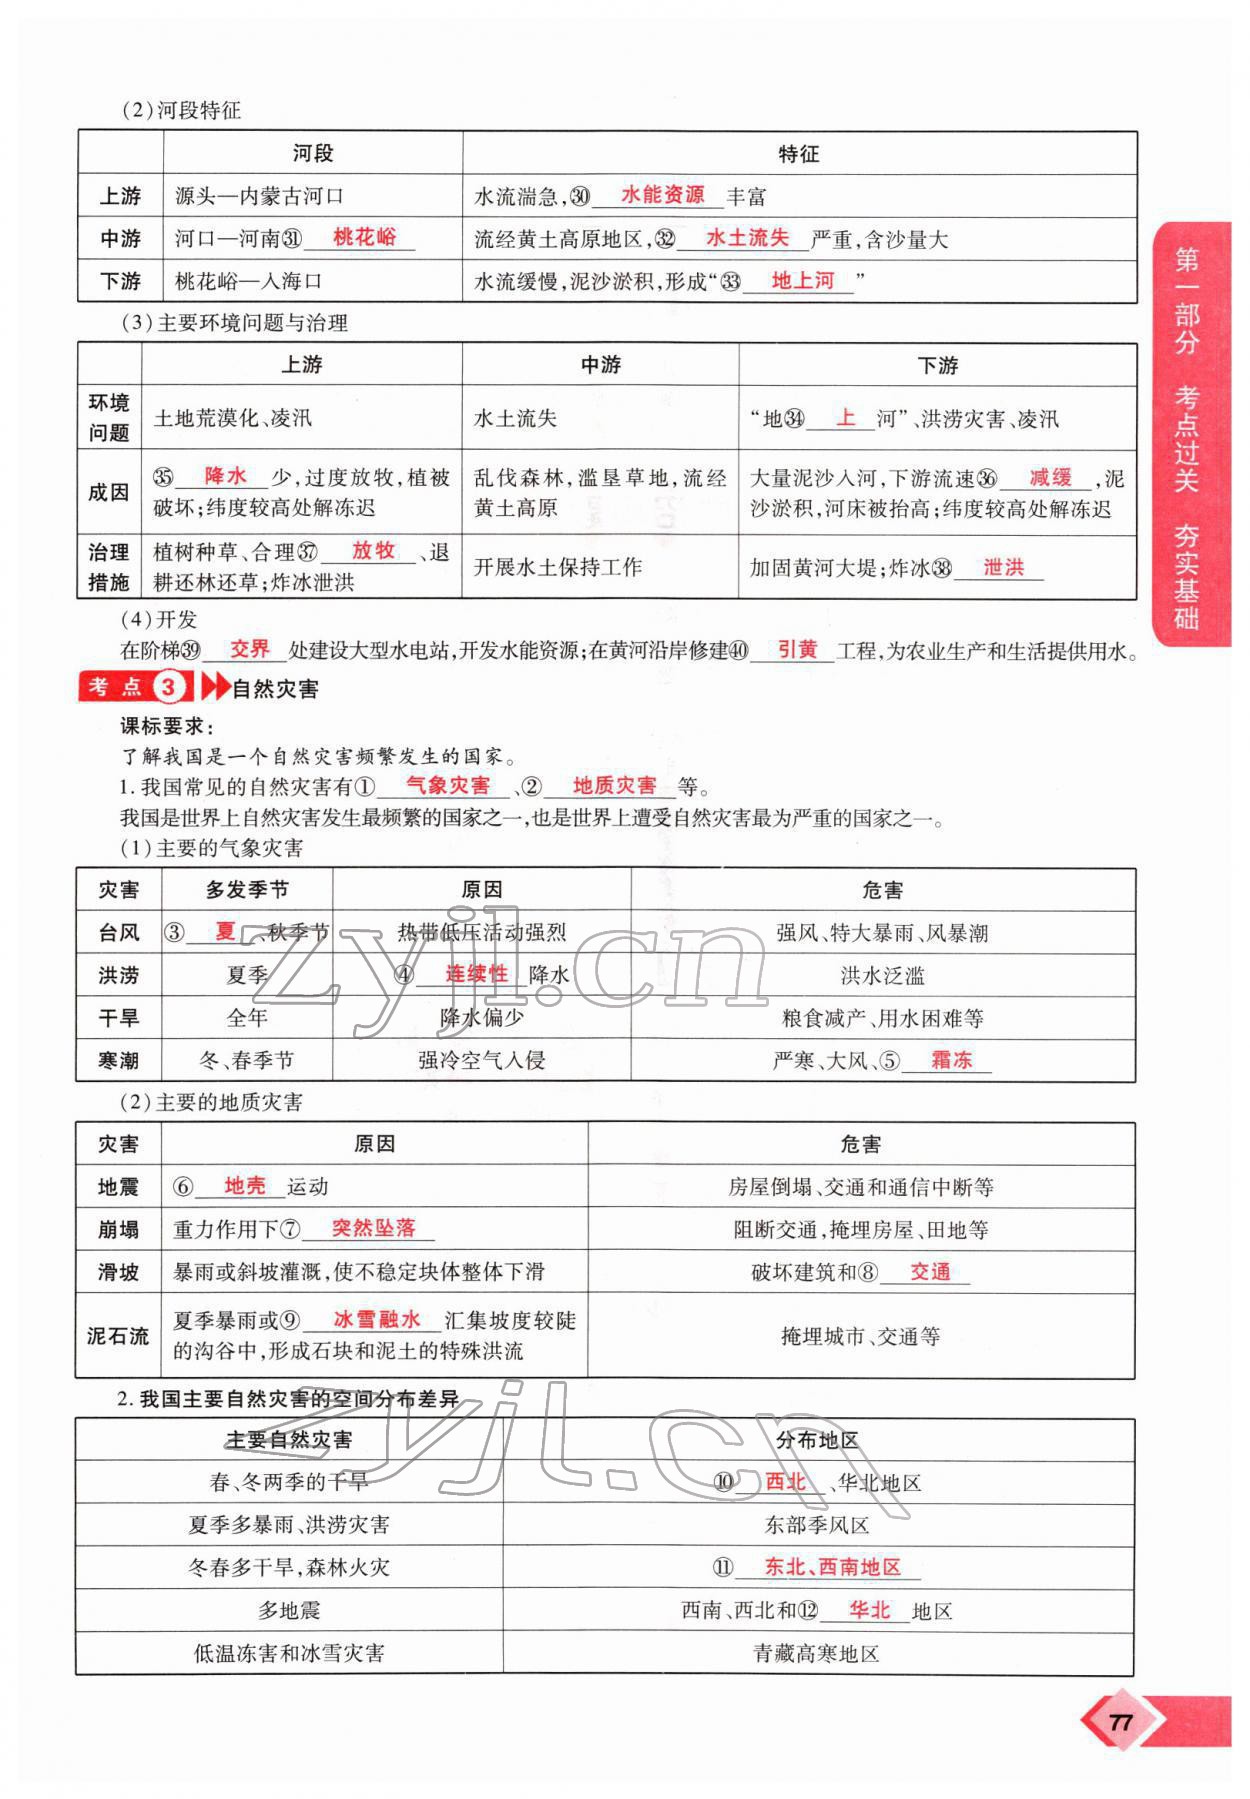 (2)河段特征
河段 特征
上游 源头—内蒙古河口 水流湍急,㉚ 水能资源 丰富
中游 河口—河南㉛ 桃花峪 流经黄土高原地区,㉜ 水土流失 严重,含沙量大
下游 桃花峪—入海口 水流缓慢,泥沙淤积,形成“㉝ 地上河 ”
(3)主要环境问题与治理
上游 中游 下游
环境问题 土地荒漠化、凌汛 水土流失 “地㉞ 上 河”、洪涝灾害、凌汛
成因 ㉟ 降水 少,过度放牧,植被破坏;纬度较高处解冻迟 乱伐森林,滥垦草地,流经黄土高原 大量泥沙入河,下游流速㊱ 减缓 ,泥沙淤积,河床被抬高;纬度较高处解冻迟
治理措施 植树种草、合理㊲ 放牧 、退耕还林还草;炸冰泄洪 开展水土保持工作 加固黄河大堤;炸冰㊳ 泄洪
(4)开发
在阶梯㊴ 交界 处建设大型水电站,开发水能资源;在黄河沿岸修建㊵ 引黄 工程,为农业生产和生活提供用水。
考点 3 自然灾害
课标要求:
了解我国是一个自然灾害频繁发生的国家。
1.我国常见的自然灾害有① 气象灾害 、② 地质灾害 等。
我国是世界上自然灾害发生最频繁的国家之一,也是世界上遭受自然灾害最为严重的国家之一。
(1)主要的气象灾害
灾害 多发季节 原因 危害
台风 ③ 夏 、秋季节 热带低压活动强烈 强风、特大暴雨、风暴潮
洪涝 夏季 ④ 连续性 降水 洪水泛滥
干旱 全年 降水偏少 粮食减产、用水困难等
寒潮 冬、春季节 强冷空气入侵 严寒、大风、⑤ 霜冻
(2)主要的地质灾害
灾害 原因 危害
地震 ⑥ 地壳 运动 房屋倒塌、交通和通信中断等
崩塌 重力作用下⑦ 突然坠落 阻断交通,掩埋房屋、田地等
滑坡 暴雨或斜坡灌溉,使不稳定块体整体下滑 破坏建筑和⑧ 交通
泥石流 夏季暴雨或⑨ 冰雪融水 汇集坡度较陡的沟谷中,形成石块和泥土的特殊洪流 掩埋城市、交通等
2.我国主要自然灾害的空间分布差异
主要自然灾害 分布地区
春、冬两季的干旱 ⑩ 西北 、华北地区
夏季多暴雨、洪涝灾害 东部季风区
冬春多干旱,森林火灾 ⑪ 东北、西南地区
多地震 西南、西北和⑫ 华北 地区
低温冻害和冰雪灾害 青藏高寒地区
第一部分 考点过关 夯实基础
77
zyjl.cn
zyjl.cn